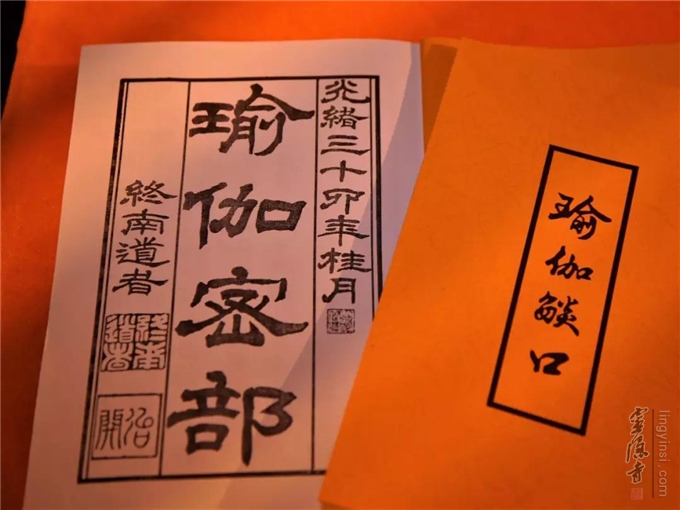 光緒三十卯年桂月
瑜伽密部
終南道者
終南道者
冶開
瑜伽燄口
靈隱寺
lingyinsi.com